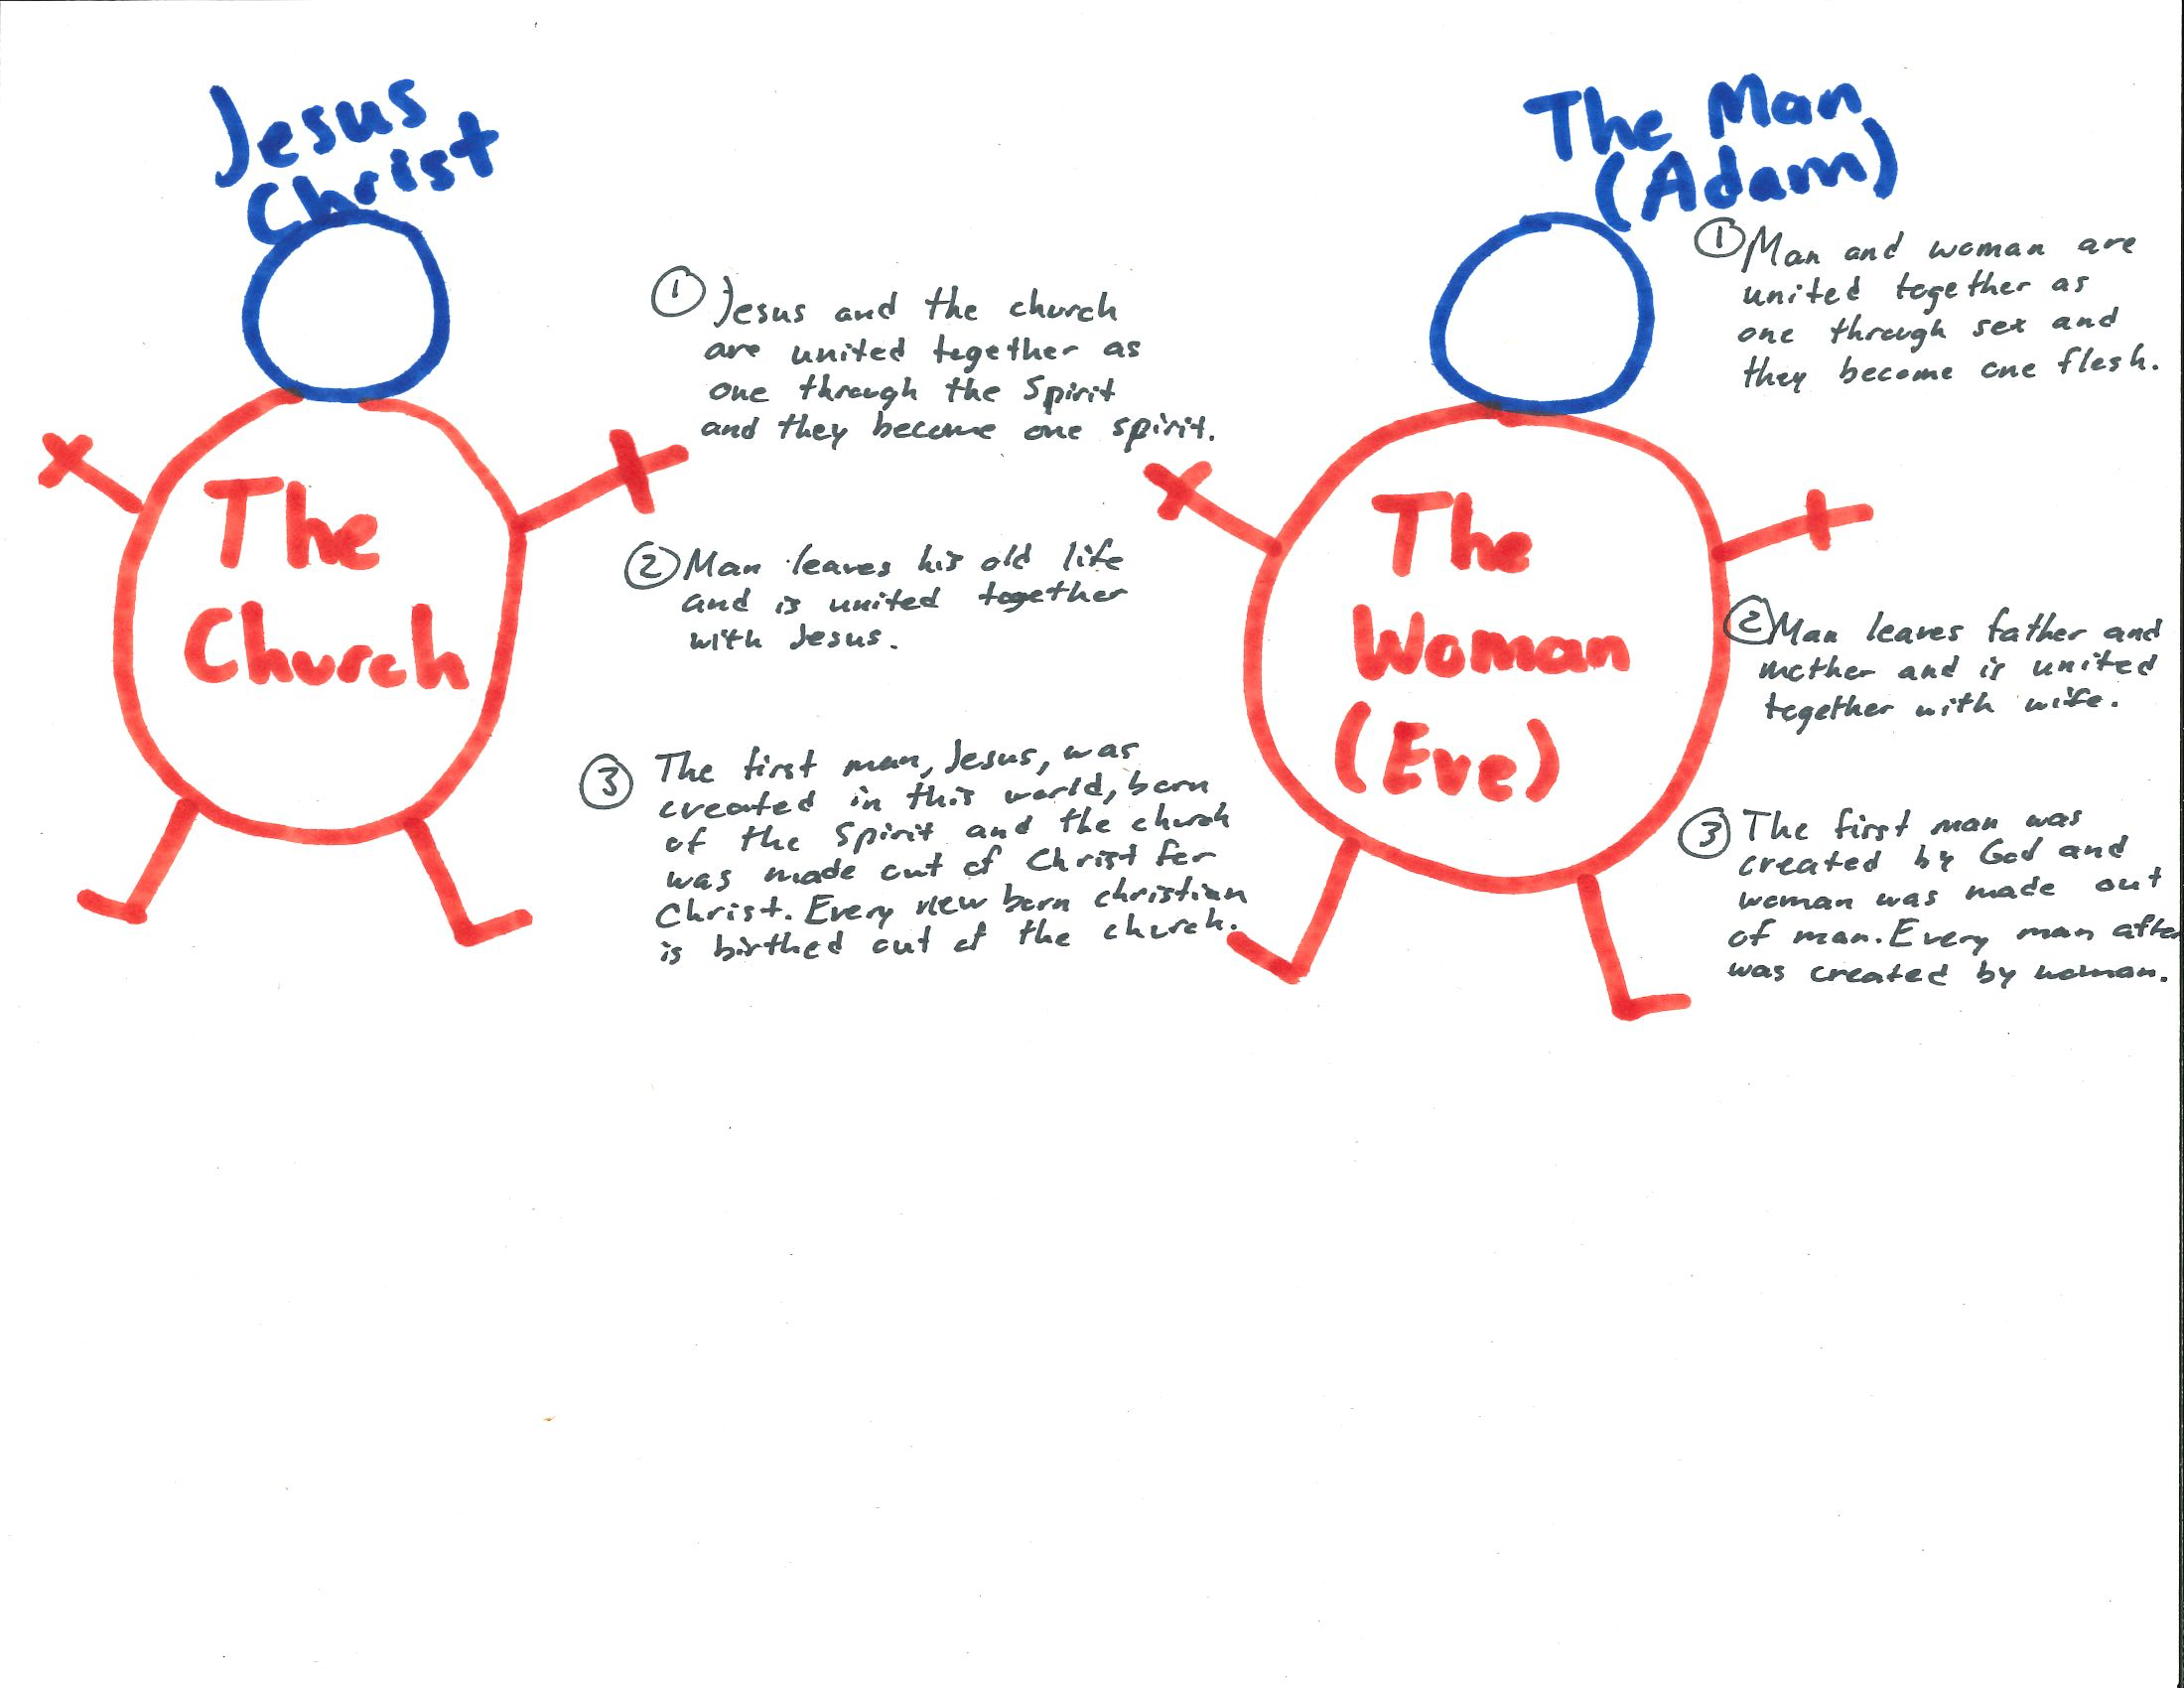 Jesus
Christ
The
Church
① Jesus and the church
are united together as
one through the Spirit
and they become one spirit.
② Man leaves his old life
and is united together
with Jesus.
③ The first man, Jesus, was
created in this world, born
of the Spirit and the church
was made out of Christ for
Christ. Every new born christian
is birthed out of the church.
The Man
(Adam)
The
Woman
(Eve)
① Man and woman are
united together as
one through sex and
they become one flesh.
② Man leaves father and
mother and is united
together with wife.
③ The first man was
created by God and
woman was made out
of man. Every man after
was created by woman.